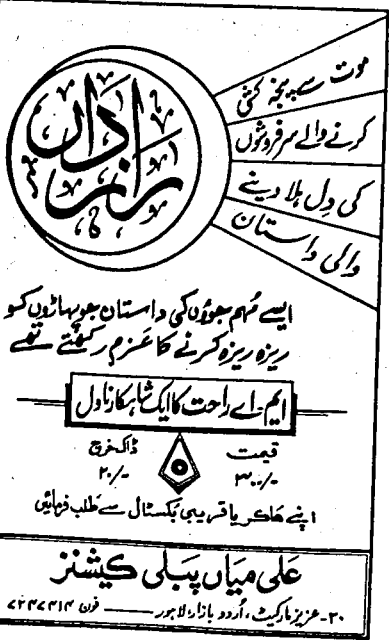 راز داں
موت سے پنجہ کشی
کرنے والے سرفروشوں
کی دل ہلا دینے
والی داستان
ایسے مہم جوؤں کی داستان جو پہاڑوں کو
ریزہ ریزہ کرنے کا عزم رکھتے تھے
ایم۔اے راحت کا ایک شاہکار ناول
قیمت ۳۰۰/-
ڈاک خرچ ۲۰/-
اپنے ہاکر یا قریبی بکسٹال سے طلب فرمائیں
علی میاں پبلی کیشنز
۲۰۔عزیز مارکیٹ، اُردو بازار، لاہور — فون ۷۲۴۷۴۱۴